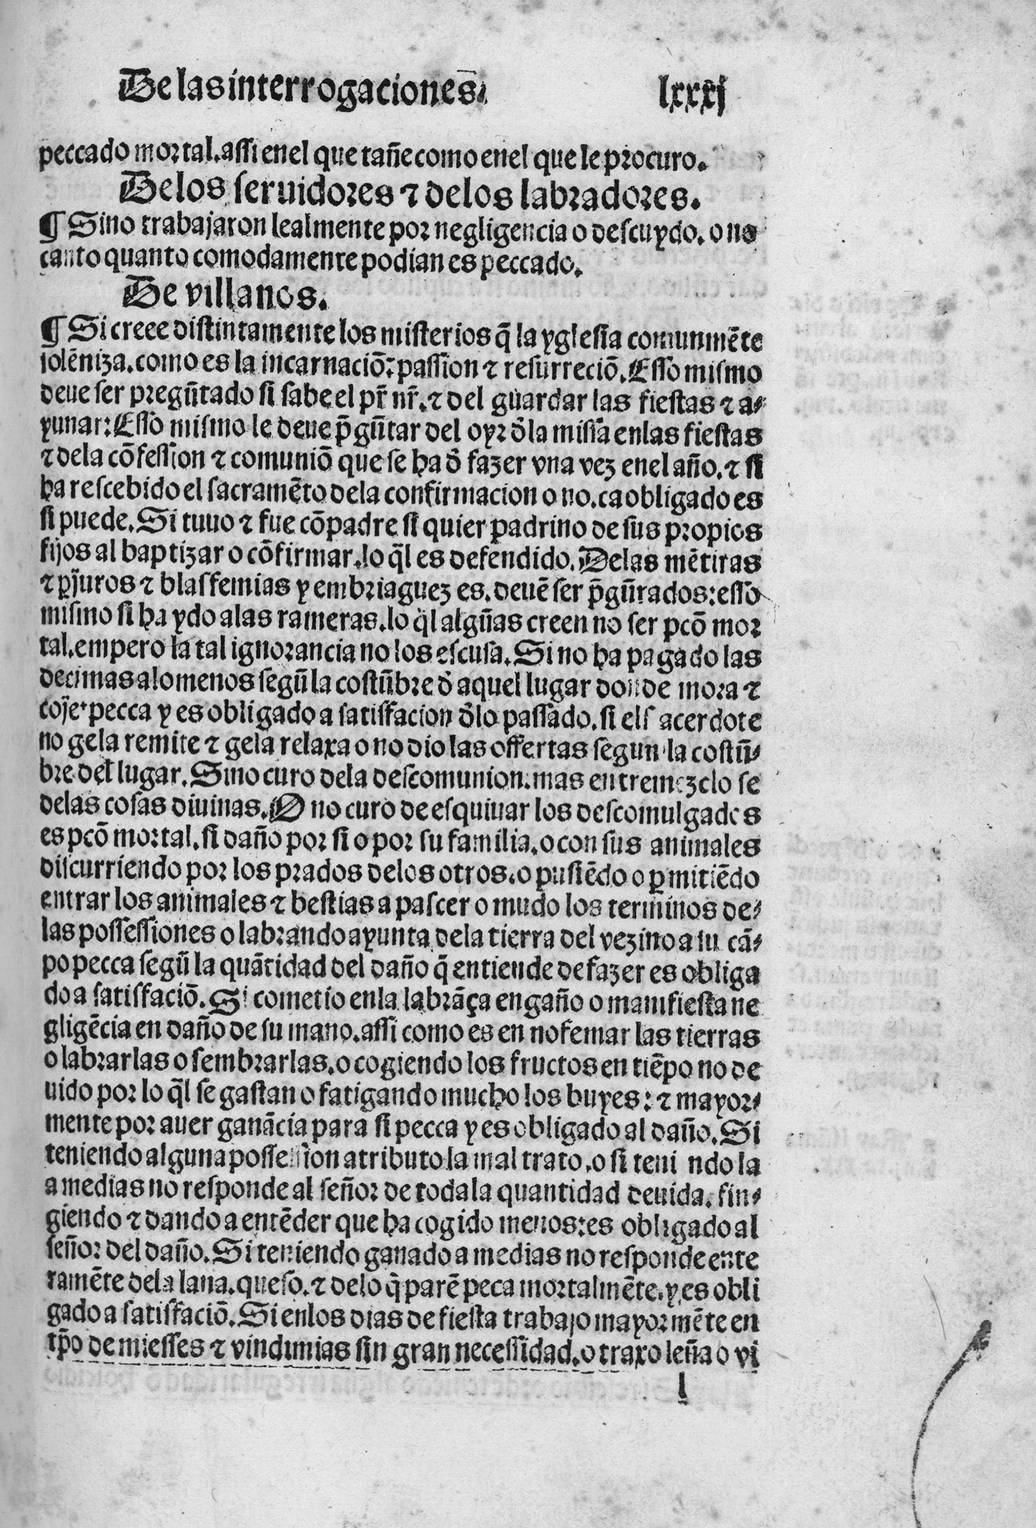 De las interrogaciones. lxxxj
peccado mortal. assi enel que tañe como enel que le procuro.
De los seruidores ⁊ de los labradores.
¶ Sino trabajaron lealmente por negligencia o descuydo. o no
tanto quanto comodamente podian es peccado.
De villanos.
¶ Si creee distintamente los misterios q̃ la yglesia comunmẽte
solẽniza. como es la incarnaciõ: passion ⁊ resurreciõ. Esso mismo
deue ser pregũtado si sabe el pr̃ nr̃. ⁊ del guardar las fiestas ⁊ a-
yunar: Esso mismo le deue p̃gũtar del oyr d̃la missa enlas fiestas
⁊ dela cõfession ⁊ comuniõ que se ha d̃ fazer vna vez enel año. ⁊ si
ha rescebido el sacramẽto dela confirmacion o no. ca obligado es
si puede. Si tuuo ⁊ fue cõpadre si quier padrino de sus propios
fijos al baptizar o cõfirmar. lo q̃l es defendido. Delas mẽtiras
⁊ ꝑjuros ⁊ blasfemias y embriaguez es. deuẽ ser p̃gũtados: esso
mismo si ha ydo alas rameras. lo q̃l algũas creen no ser pcõ mor
tal. empero la tal ignorancia no los escusa. Si no ha pagado las
decimas alomenos segũ la costũbre d̃ aquel lugar donde mora ⁊
coje. pecca y es obligado a satisfacion d̃lo passado. si el sacerdote
no gela remite ⁊ gela relaxa o no dio las offertas segun la costũ-
bre del lugar. Sino curo dela descomunion. mas entremezclo se
delas cosas diuinas. O no curo de esquiuar los descomulgados
es pcõ mortal. si daño por si o por su familia. o con sus animales
discurriendo por los prados delos otros. o pusiẽdo o ꝑmitiẽdo
entrar los animales ⁊ bestias a pascer o mudo los terminos de-
las possessiones o labrando ayunta dela tierra del vezino a su cã-
po pecca segũ la quãtidad del daño q̃ entiende de fazer es obliga
do a satisfaciõ. Si cometio enla labrãça engaño o manifiesta ne
gligẽcia en daño de su mano. assi como es en no femar las tierras
o labrarlas o sembrarlas. o cogiendo los fructos en tiẽpo no de
uido por lo q̃l se gastan o fatigando mucho los buyes: ⁊ mayor-
mente por auer ganãcia para si pecca y es obligado al daño. Si
teniendo alguna possession a tributo la mal trato. o si teniendo la
a medias no responde al señor de toda la quantidad deuida. fin-
giendo ⁊ dando a entẽder que ha cogido menos: es obligado al
señor del daño. Si teniendo ganado a medias no responde ente
ramẽte dela lana. queso. ⁊ delo q̃ parẽ peca mortalmẽte. y es obli
gado a satisfaciõ. Si enlos dias de fiesta trabajo mayormẽte en
tp̃o de miesses ⁊ vindimias sin gran necessidad. o traxo leña o vi
l